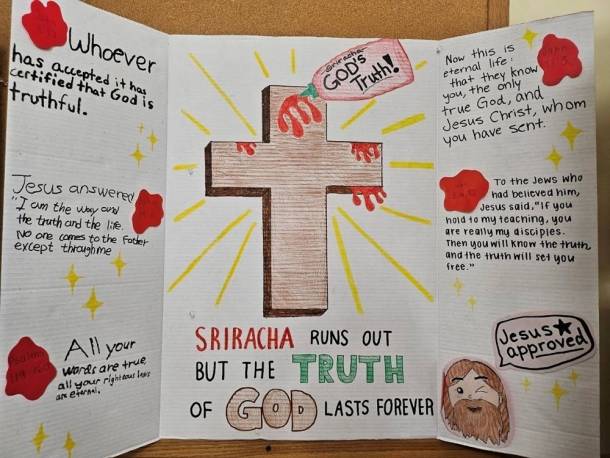 Whoever
has accepted it has
certified that God is
truthful.
Jesus answered
"I am the way and
the truth and the life.
No one comes to the father
except through me
Psalms
119:160
All your
words are true,
all your righteous laws
are eternal.
Sriracha
GOD'S
Truth!
SRIRACHA RUNS OUT
BUT THE TRUTH
OF GOD LASTS FOREVER
Now this is
eternal life:
that they know
you, the only
true God, and
Jesus Christ, whom
you have sent.
To the Jews who
had believed him,
Jesus said, "If you
hold to my teaching, you
are really my disciples.
Then you will know the truth,
and the truth will set you
free."
Jesus
approved